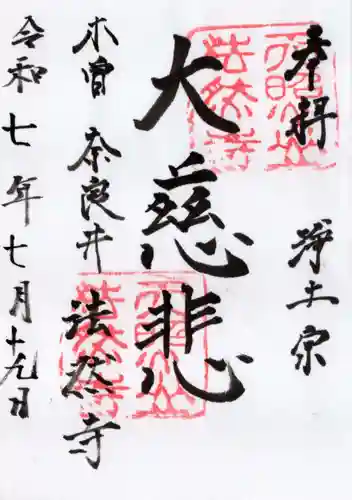 奉拝 浄土宗
大慈悲
木曽 奈良井 法然寺
令和七年七月十九日